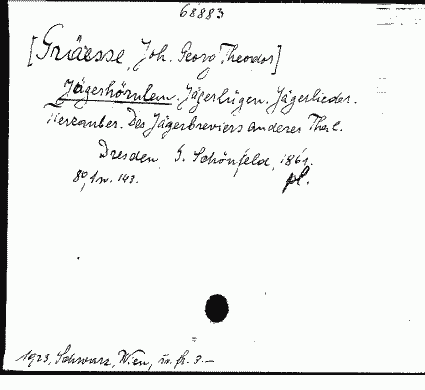 68883
[Gräesse, Joh. Georg Theodor]
Jägerhörnlein. Jägerlügen. Jägerlieder.
Des Jägerbreviers anderer Theil.
Dresden, G. Schönfeld, 1861.
8°, 1 w. 143. pl.
1923, Schwarz, Wien, ö. fr. 3.–